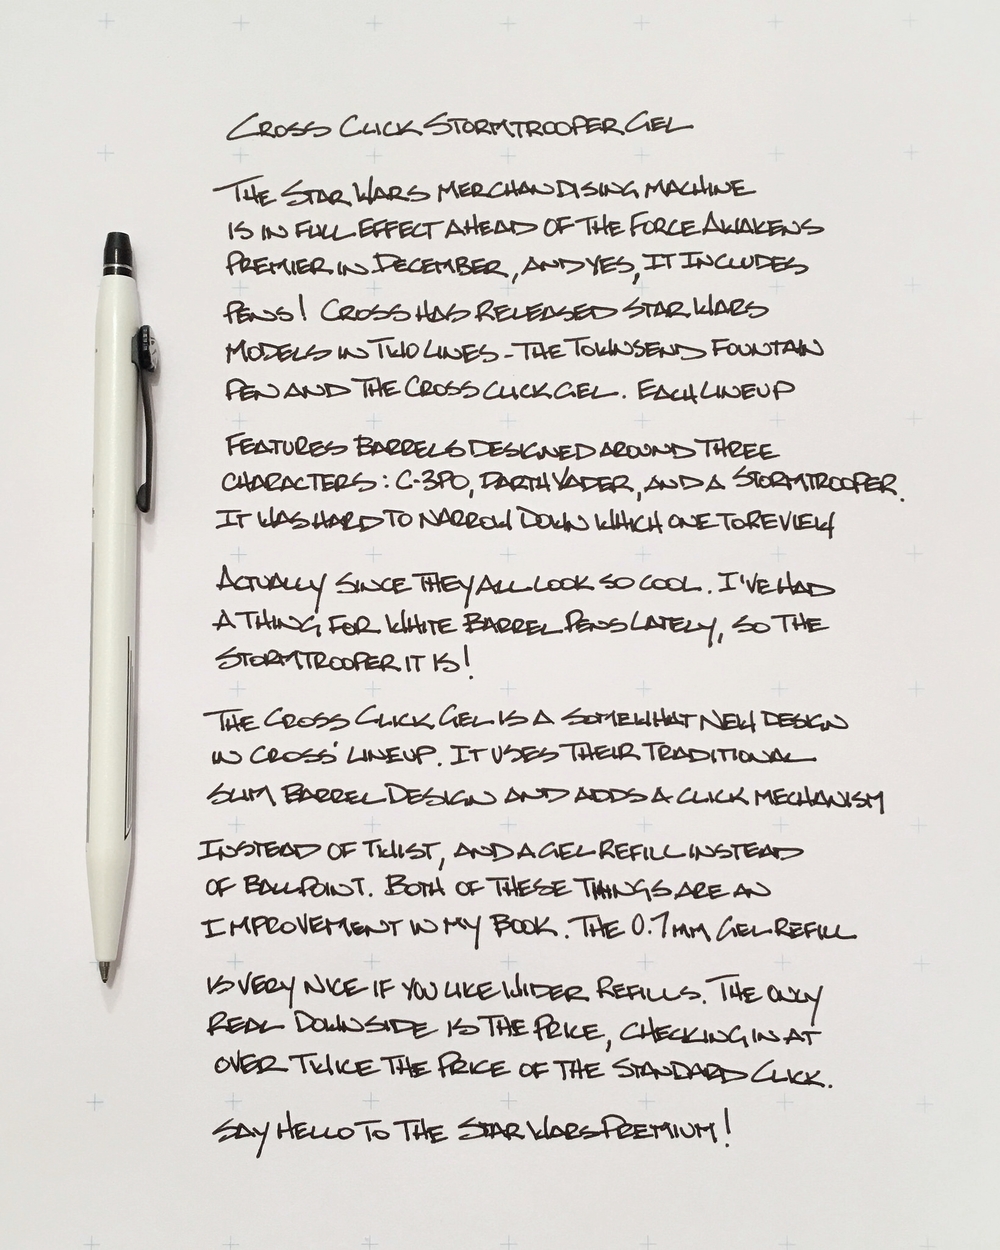 CROSS CLICK STORMTROOPER GEL
THE STAR WARS MERCHANDISING MACHINE
IS IN FULL EFFECT AHEAD OF THE FORCE AWAKENS
PREMIER IN DECEMBER, AND YES, IT INCLUDES
PENS! CROSS HAS RELEASED STAR WARS
MODELS IN TWO LINES - THE TOWNSEND FOUNTAIN
PEN AND THE CROSS CLICK GEL. EACH LINEUP
FEATURES BARRELS DESIGNED AROUND THREE
CHARACTERS: C-3PO, DARTH VADER, AND A STORMTROOPER.
IT WAS HARD TO NARROW DOWN WHICH ONE TO REVIEW
ACTUALLY SINCE THEY ALL LOOK SO COOL. I'VE HAD
A THING FOR WHITE BARREL PENS LATELY, SO THE
STORMTROOPER IT IS!
THE CROSS CLICK GEL IS A SOMEWHAT NEW DESIGN
IN CROSS' LINEUP. IT USES THEIR TRADITIONAL
SLIM BARREL DESIGN AND ADDS A CLICK MECHANISM
INSTEAD OF TWIST, AND A GEL REFILL INSTEAD
OF BALLPOINT. BOTH OF THESE THINGS ARE AN
IMPROVEMENT IN MY BOOK. THE 0.7 MM GEL REFILL
IS VERY NICE IF YOU LIKE WIDER REFILLS. THE ONLY
REAL DOWNSIDE IS THE PRICE, CHECKING IN AT
OVER TWICE THE PRICE OF THE STANDARD CLICK.
SAY HELLO TO THE STAR WARS PREMIUM!